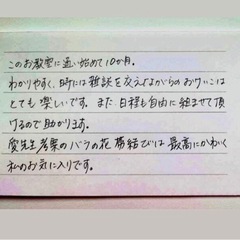 このお教室に通い始めて10か月。
わかりやすく、時には雑談を交えながらのおけいこは
とても楽しいです。また、日程も自由に組ませて頂
けるので助かります。
先生考案のバラの花帯結びは最高にかわいく
私のお気に入りです。